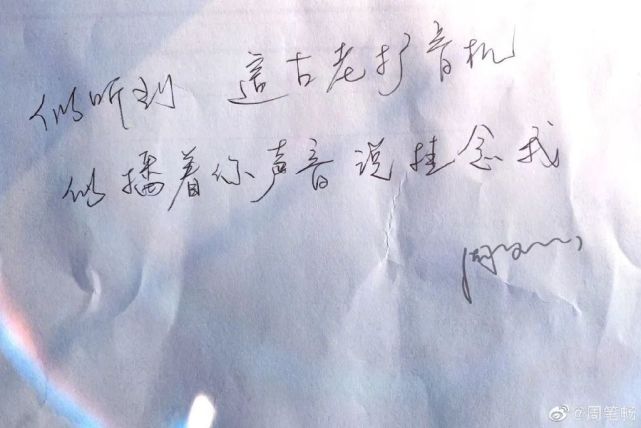 似听到 這古老扩音机
似播着你声音说挂念我
@周笔畅